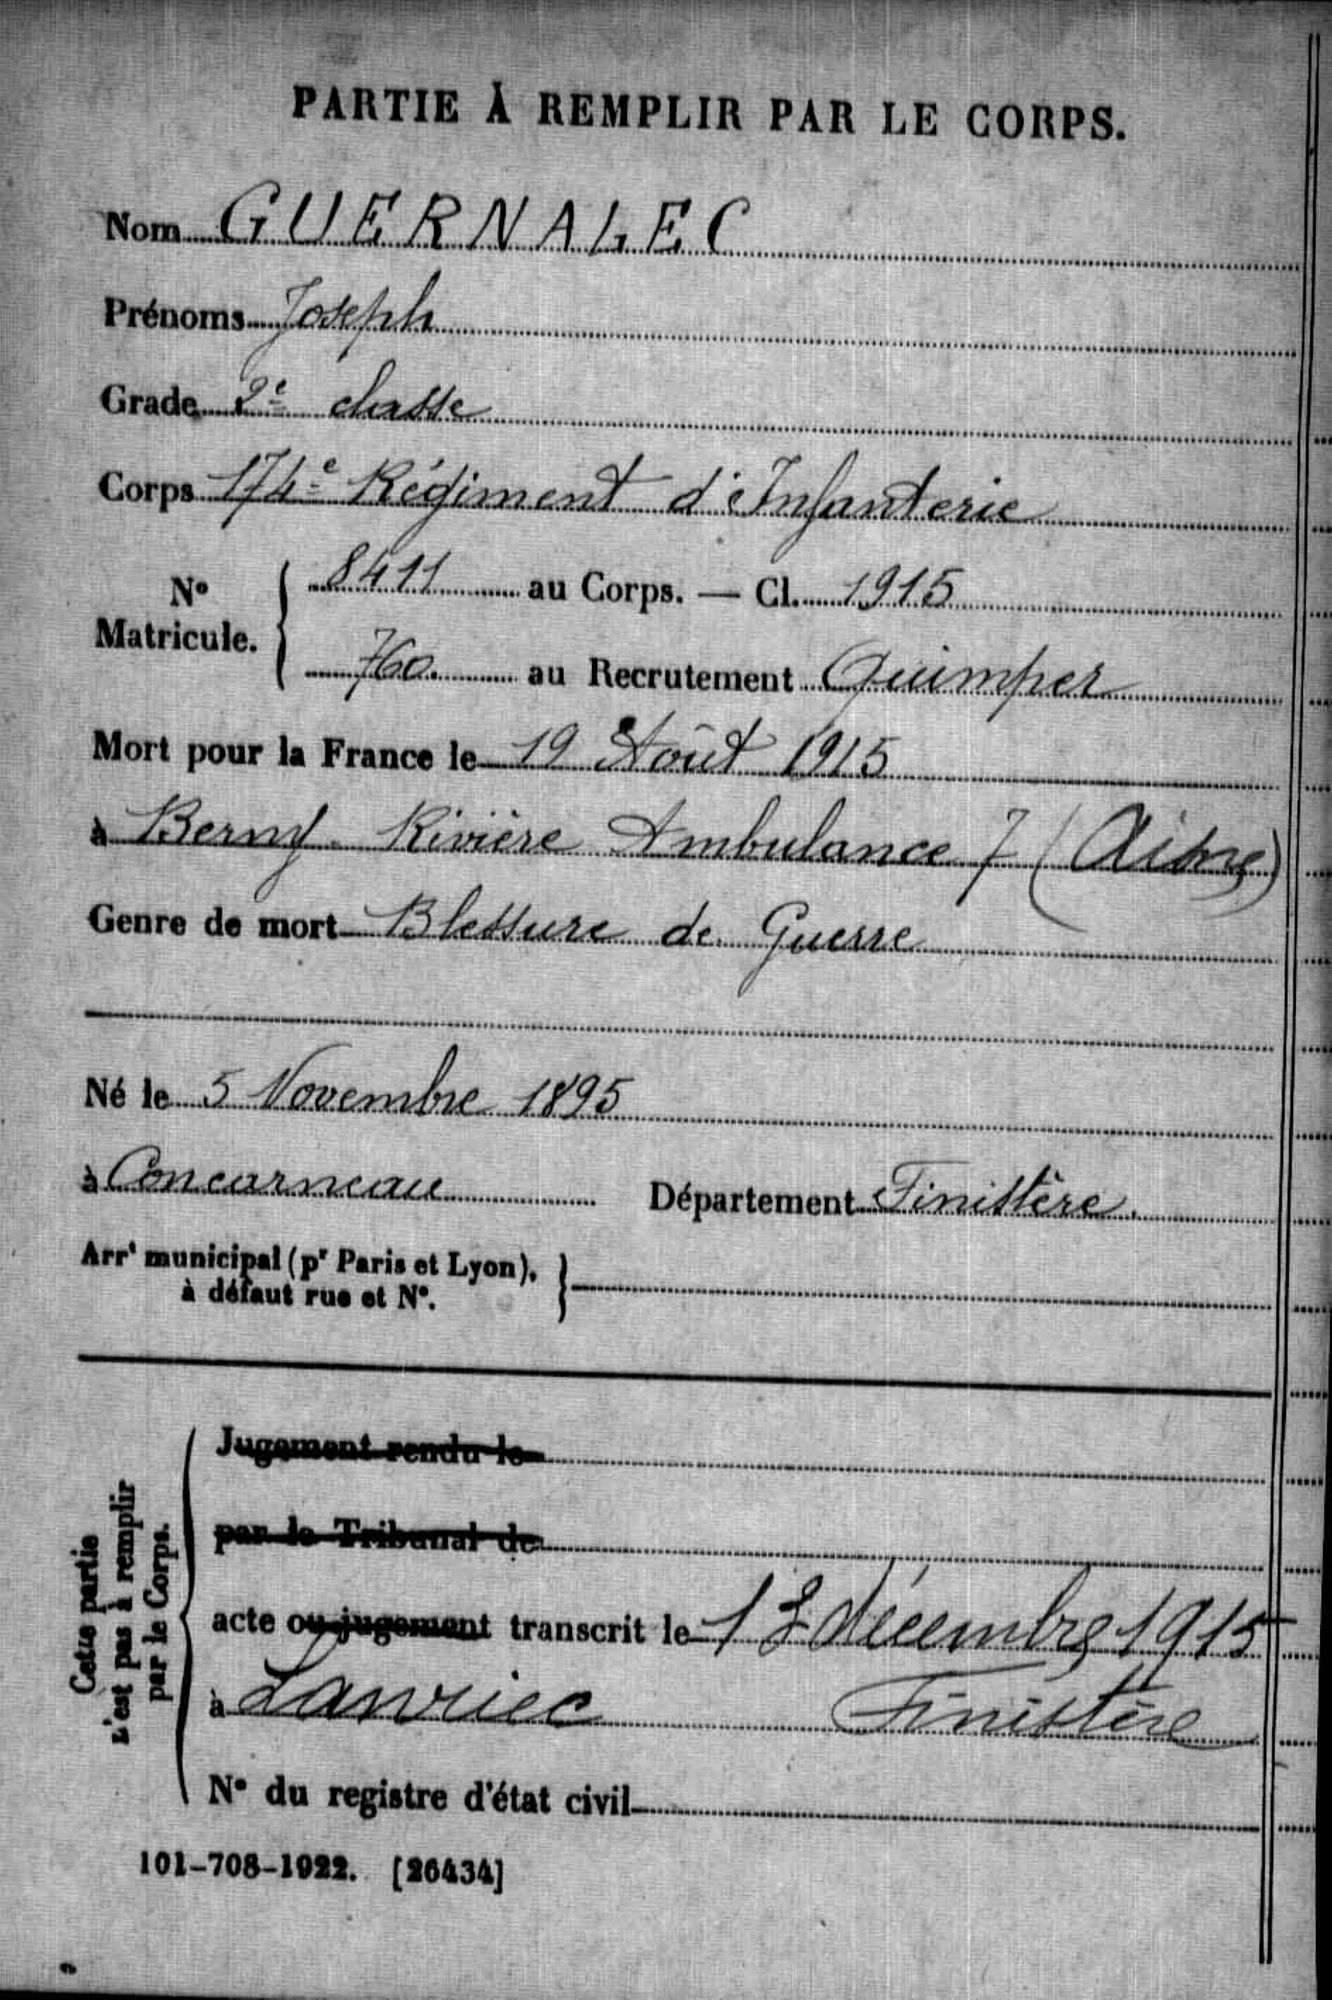 PARTIE À REMPLIR PAR LE CORPS.
Nom GUERNALEC
Prénoms Joseph
Grade 2e classe
Corps 174e Régiment d'Infanterie
No Matricule. 8411 au Corps. — Cl. 1915
760. au Recrutement Quimper
Mort pour la France le 19 Août 1915
à Berny-Rivière Ambulance 7 (Aisne)
Genre de mort Blessure de Guerre
Né le 5 Novembre 1895
à Concarneau Département Finistère.
Arrt municipal (pr Paris et Lyon),
à défaut rue et No.
Cette partie
n'est pas à remplir
par le Corps.
Jugement rendu le
par le Tribunal de
acte ou jugement transcrit le 13 décembre 1915
à Lanriec Finistère
No du registre d'état civil
101-708-1922. [26434]